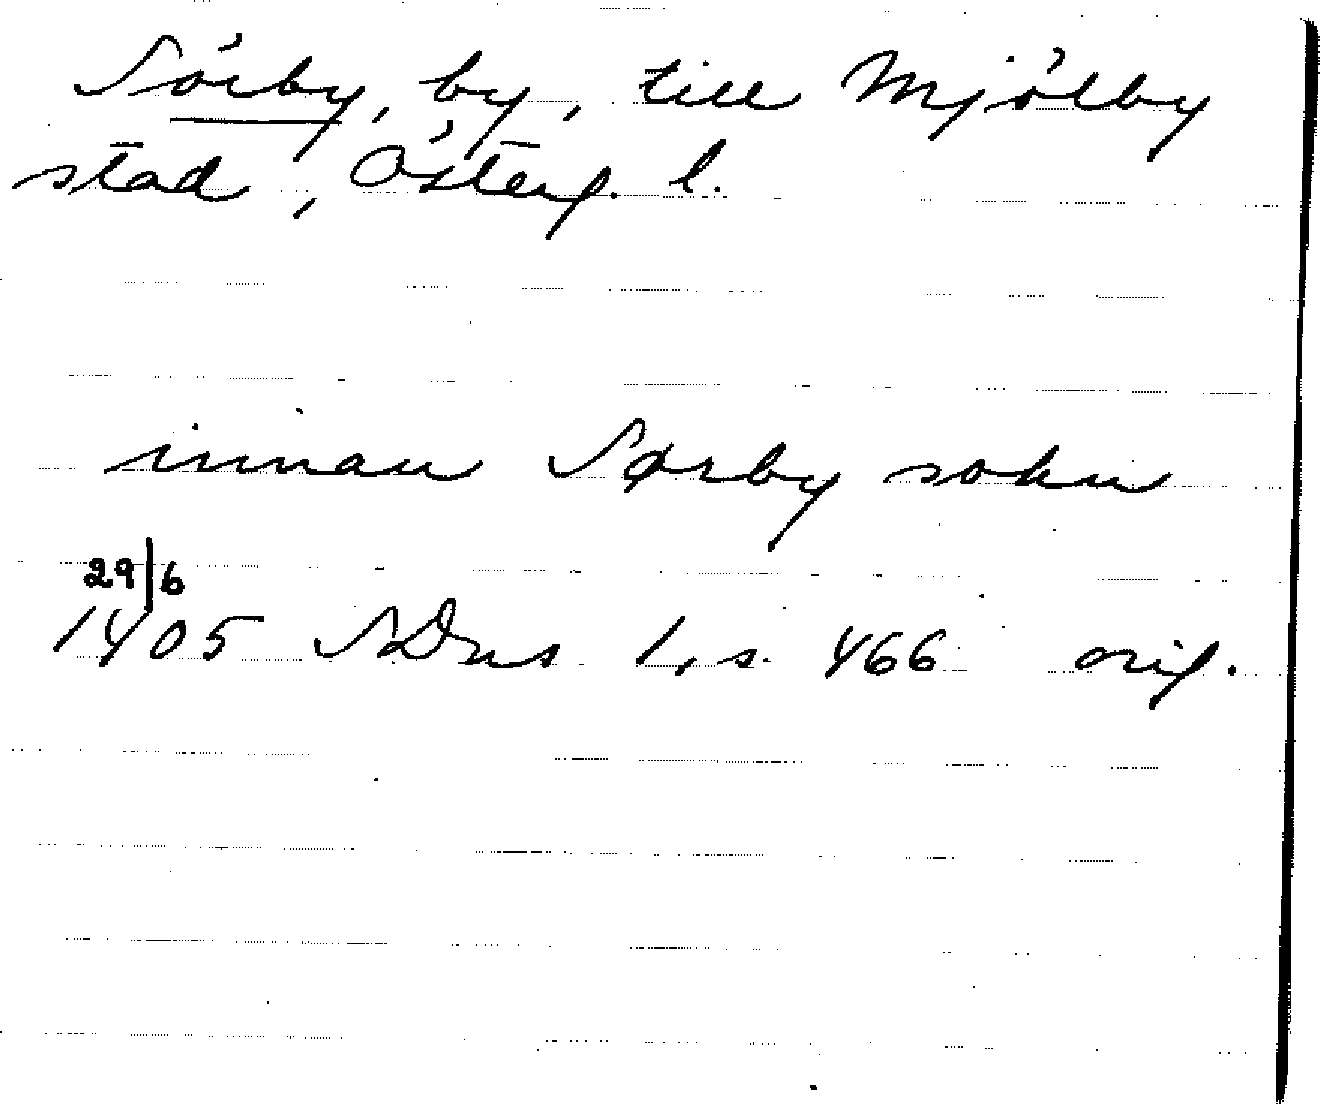 Sörby, by, till Mjölby
stad, Österg. l.
innan Sørby sokn
29/6
1405 SDns 1, s. 466 orig.